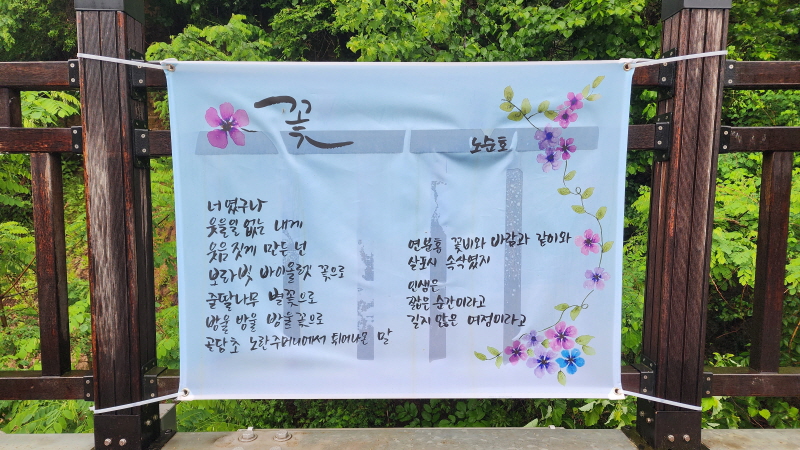 꽃
노순호
너 였구나
웃을일 없는 내게
웃음 짓게 만든 넌
보라빛 바이올렛 꽃으로
금딸나무 별꽃으로
방울 방울 방울꽃으로
곤담초 노란주머니에서 튀어나온 말
연분홍 꽃비와 바람과 같이와
살포시 속삭였지
인생은
짧은 순간이라고
길지 않은 여정이라고